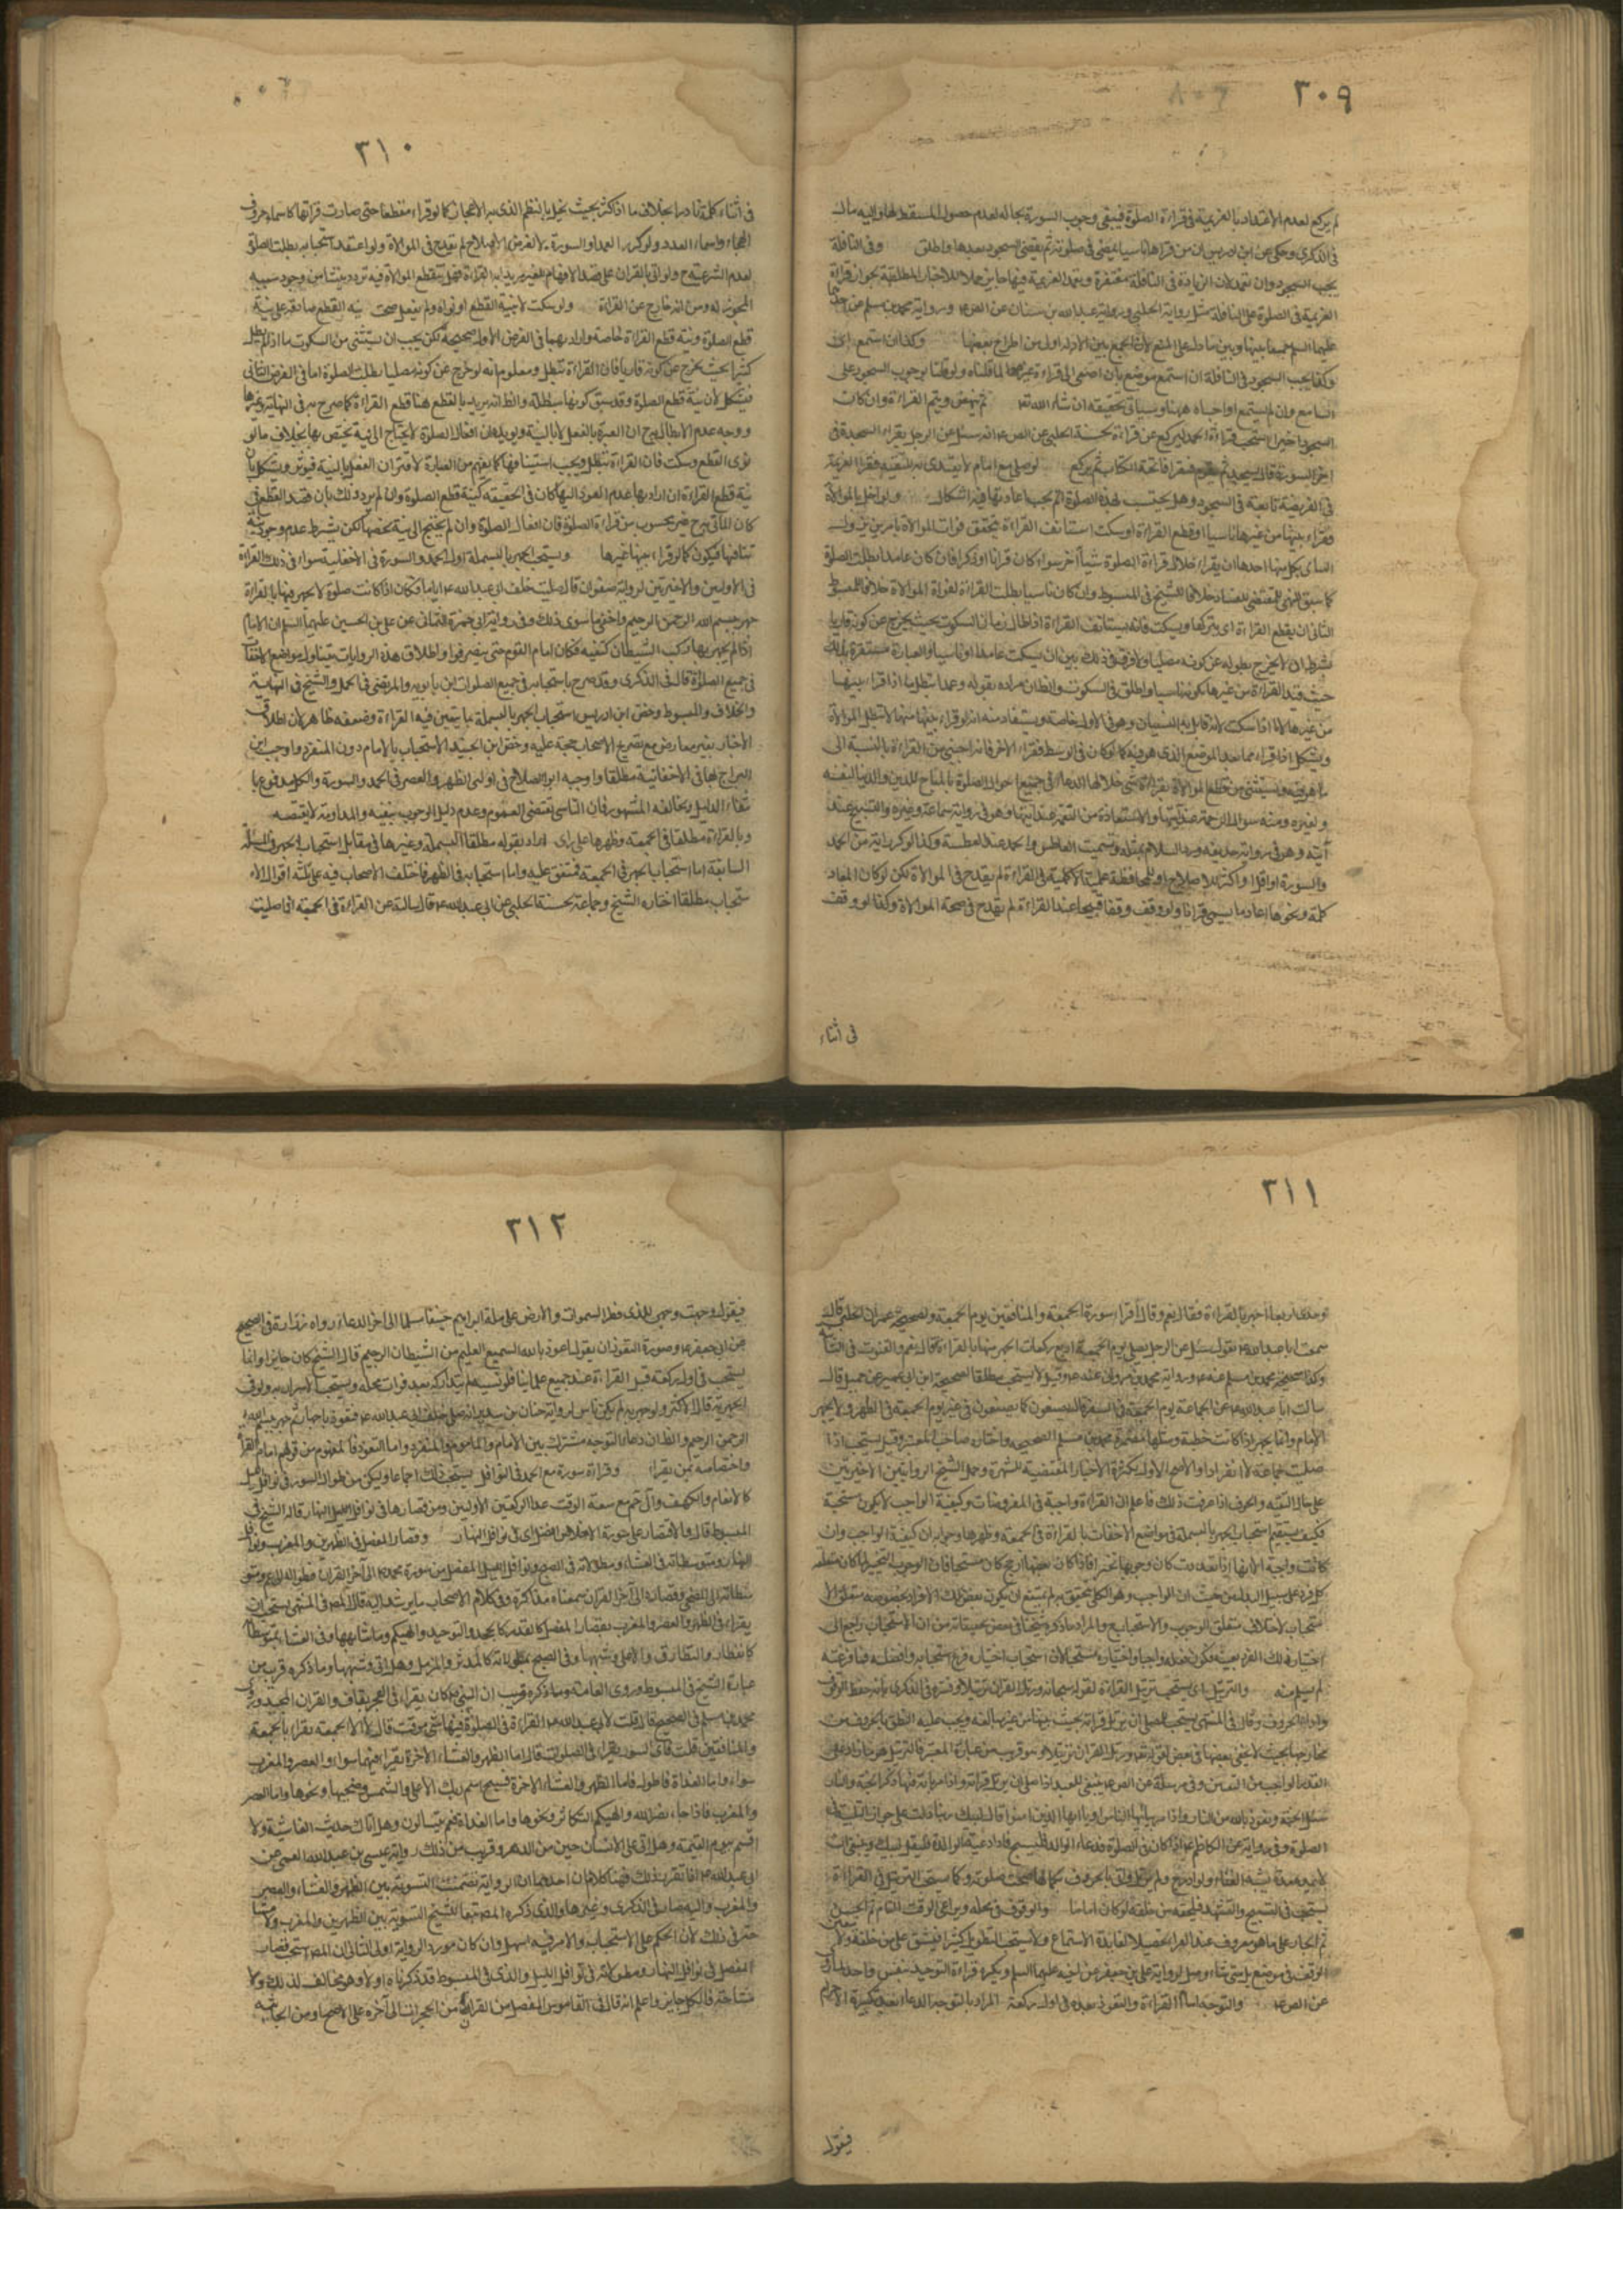 ٣٠٩
لم يركع لعدم الاعتداد بالعزيمة فى قراءة الصلوة فيبقى وجوب السورة بحاله لعدم حصول المسقط لها واليه مال
فى الذكرى وحكى عن ابن ادريس ان من قراها ناسيا يمضى فى صلوته ثم يقضى السجود بعدها واطلق وفى النافلة
يجب السجود وان تعمد لان الزيادة فى النافلة مغتفرة وتعمد العزيمة فيها جايز حملا للاخبار المطلقة بجواز قراءة
العزيمة فى الصلوة على النافلة مثل رواية الحلبى ورواية عبد الله بن سنان عن الص ع ورواية محمد بن مسلم عن احدهما
عليهما السلم جمعا بينها وبين ما دل على المنع لان الجمع بين الادلة اولى من اطراح بعضها وكذا ان استمع اى
وكذا يجب السجود فى النافلة ان استمع موضع بان اصغى الى قراءة غيره لما قلناه ولو قلنا بوجوب السجود على
السامع وان لم يستمع اوجبناه هنا وسياتى تحقيقه ان شاء الله تع ثم ينهض ويتم القراءة وان كان
السجود اخيرا استحب قراءة الحمد ليركع عن قراءة لحسنة الحلبى عن الص ع انه سئل عن الرجل يقراء السجدة فى
اخر السورة قال يسجد ثم يقوم فيقرا فاتحة الكتاب ثم يركع لو صلى مع امام لا يقتدى به للتقية فقرا العزيمة
فى الفريضة تابعه فى السجود وهل يحتسب بهذه الصلوة ام يجب اعادتها فيه اشكال ولو اخل بالموالاة
فقراء بينها من غيرها ناسيا او قطع القراءة وسكت استانف القراءة يتحقق فوات الموالاة بامرين
احدهما ان يقراء خلال قراءة الصلوة شيأ اخر سواء كان قرانا او ذكرا فان كان عامدا بطلت الصلوة
كما سبق للنهى المقتضى للفساد خلافا للشيخ فى المبسوط وان كان ناسيا بطلت القراءة لفوات الموالاة خلافا للمبسوط
الثانى ان يقطع القراءة اى يتركها ويسكت فانه يستانف القراءة اذا طال زمان السكوت بحيث يخرج عن كونه قاريا
بشرط ان لا يخرج بطوله عن كونه مصليا ولا فرق فى ذلك بين ان يسكت عامدا او ناسيا والعبارة
حيث قيد القراءة من غيرها بكونه ناسيا واطلق فى السكوت والظان مراده بقوله وعمدا تبطل ما اذا قراء بينها
من غيرها لا اذا سكت لانه قابل به النسيان وهو فى الاول خاصة ويستفاد منه انه لو قراء بينها منها لا تبطل الموالاة
ويشكل اذا قراء مما عدا الموضع الذى هو فيه كما لو كان فى الوسط فقراء الاخر فانه اجنبى من القراءة بالنسبة الى
ما هو فيه ويستثنى من قطع الموالاة بقراءة شئ خلالها الدعاء فى جميع احوال الصلوة بالمباح للدين والدنيا لنفسه
ولغيره ومنه سوال الرحمة عند آيتها والاستعاذة من النقمة عند آيتها وهو فى رواية سماعة وغيره والتسبيح عند
آيته وهو فى رواية حذيفة ورد السلام بمثله وتسميت العاطس والحمد عند العطسة وكذا لو كرر آية من الحمد
والسورة او اقل او اكثر للاصلاح او للمحافظة على الاكملية فى القراءة لم يقدح فى الموالاة لكن لو كان المعاد
كلمة ونحوها اعاد ما يسمى قرانا ولو وقف وقفا قبيحا عند القراءة لم يقدح فى صحة الموالاة وكذا لو وقف
فى اثناء
٣١٠
فى اثناء كلمة نادرا بخلاف ما اذا كثر بحيث يخل بالنظم الذى به الاعجاز كما لو قراء مقطعا حتى صارت قراتها كاسماء حروف
الهجاء واسماء العدد ولو كرر العمد او السورة لا لغرض الاصلاح لم يقدح فى الموالاة ولو اعتقد استحبابه بطلت الصلوة
لعدم الشرعية ح ولو اتى بالقران على قصد الافهام للغير مريدا به القراءة فهل تنقطع الموالاة فيه تردد ينشا من وجود سببه
المجوز له ومن انه خارج عن القراءة ولو سكت لا بنية القطع او نواه ولم يفعل صحت نية القطع صادقة على نية
قطع الصلوة ونية قطع القراءة خاصة واراد بها فى الفرض الاول صحيحة لكن يجب ان يستثنى من السكوت ما اذا لم يطل
كثيرا بحيث يخرج عن كونه قاريا فان القراءة تبطل ومعلوم انه لو خرج عن كونه مصليا بطلت الصلوة اما فى الفرض الثانى
فيشكل لان نية قطع الصلوة وقد سبق كونها مبطلة والظ انه يريد بالقطع هنا قطع القراءة كما صرح به فى النهاية وغيرها
ووجه عدم الابطال ح ان العبرة بالفعل لا بالنية ويويده ان افعال الصلوة لا تحتاج الى نية تختص بها بخلاف ما لو
نوى القطع وسكت فان القراءة تبطل ويجب استينافها كما يفهم من العبارة لاقتران الفعل بالنية فيوثر ويشكل بان
نية قطع القراءة ان اراد بها عدم العود اليها كان فى الحقيقة كنية قطع الصلوة وان لم يرد ذلك بان قصد القطع فى
كان الماتى به ح غير محسوب من قراءة الصلوة فان افعال الصلوة وان لم تحتج الى نية تخصها لكن يشترط عدم وجود نية
تنافيها فيكون كما لو قراء بينها غيرها ويستحب الجهر بالبسملة اول الحمد والسورة فى الاخفاتية سواء فى ذلك القراءة
فى الاوليين والاخيرتين لرواية صفوان قال صليت خلف ابى عبد الله ع اياما فكان اذا كانت صلوة لا يجهر فيها بالقراءة
جهر ببسم الله الرحمن الرحيم واخفى ما سوى ذلك وفى رواية ابى حمزة الثمالى عن على بن الحسين عليهما السلم ان الامام
اذا لم يجهر بها ركب الشيطان كتفيه فكان امام القوم حتى ينصرفوا واطلاق هذه الروايات يتناول مواضع الاخفات
فى جميع الصلوة قال فى الذكرى وقد صرح باستحبابه فى جميع الصلوات ابن بابويه والمرتضى فى الجمل والشيخ فى النهاية
والخلاف والمبسوط وخص ابن ادريس استحباب الجهر بالبسملة بما يتعين فيه القراءة وضعفه ظاهر لان اطلاق
الاخبار بغير معارض مع تصريح الاصحاب حجة عليه وخص ابن الجنيد الاستحباب بالامام دون المنفرد واوجب ابن
البراج بها فى الاخفاتية مطلقا واوجبه ابو الصلاح فى اولى الظهر والعصر فى الحمد والسورة والكل مدفوع با
نتفاء الدليل ومخالفه المشهور فان التاسى اقتضى العموم وعدم دليل الوجوب ينفيه والمداومة لا يقتضيه
وبالقراءة مطلقا فى الجمعة وظهرها على راى اراد بقوله مطلقا البسملة وغيرها فى مقابل استحباب الجهر فى البسملة
السابقة اما استحباب الجهر فى الجمعة فمتفق عليه واما استحبابه فى الظهر فاختلف الاصحاب فيه على ثلثة اقوال الا
ستحباب مطلقا اختاره الشيخ وجماعة لحسنة الحلبى عن ابى عبد الله ع قال سالته عن القراءة فى الجمعة اذا صليت
٣١١
وحدى اربعا اجهر بالقراءة فقال نعم وقال اقرا سورة الجمعة والمنافقين يوم الجمعة ولصحيحة عمران الحلبى قال
سمعت ابا عبد الله ع يقول وسئل عن الرجل يصلى يوم الجمعة اربع ركعات ايجهر فيها بالقراءة قال نعم والقنوت فى الثانية
وكذا صحيحة محمد بن مسلم عنه ع ورواية محمد بن مروان عنه ع وقيل لا يستحب مطلقا لصحيحة ابن ابى عمير عن جميل قال
سالت ابا عبد الله ع عن الجماعة يوم الجمعة فى السفر قال يصنعون كما يصنعون فى غير يوم الجمعة فى الظهر ولا يجهر
الامام وانما يجهر اذا كانت خطبة ومثلها محمد بن مسلم الصحيحة واختاره صاحب المعتبر وقيل يستحب اذا
صليت جماعة لا انفرادا والاصح الاول لكثرة الاخبار المقتضية للشهرة وحمل الشيخ الروايتين الاخيرتين
على حال التقية والخوف اذا عرفت ذلك فاعلم ان القراءة واجبة فى المفروضات وكيفية الواجب لا يكون مستحبة
فكيف يستقيم استحباب الجهر بالبسملة فى مواضع الاخفات بالقراءة فى الجمعة وظهرها وجوابه ان كيفية الواجب وان
كانت واجبة الا انها اذا تعددت كان وجوبها تخييريا فاذا كان بعضها ارجح كان مستحبا فان الوجوب التخييرى لما كان متعلقه
كل فرد على سبيل البدل من حيث ان الواجب وهو الكلى يتحقق به لم يمتنع ان يكون بعض تلك الافراد بخصوصه متعلق الا
ستحباب لاختلاف متعلق الوجوب والاستحباب والمراد بما ذكره مستحبا فى بعض تحقيقاته من ان الاستحباب راجع الى
اختيار ذلك الفرد بعينه فيكون فعله واجبا واختياره مستحبا لان استحباب اختياره فرع استحبابه وافضليته فما فر عنه
لم يسلم منه والترتيل اى يستحب ترتيل القراءة لقوله سبحانه ورتل القران ترتيلا وفسره فى الذكرى بانه حفظ الوقوف
واداء الحروف وقال فى المنتهى يستحب للمصلى ان يرتل قراءته بحيث يبينها من غير مبالغة ويجب عليه النطق بالحروف من
مخارجها بحيث لا يخفى بعضها فى بعض لقوله تع ورتل القران ترتيلا وهو قريب من عبارة المعتبر فالترتيل هو ما زاد على
القدر الواجب من التبيين وفى مرسلة عن الص ع ينبغى للعبد اذا صلى ان يرتل قراءته واذا مر باية فيها ذكر الجنة والنار
سئل الجنة وتعوذ بالله من النار واذا مر بيا ايها الناس او يا ايها الذين امنوا قال لبيك ربنا دلت على جواز التلبية فى
الصلوة وفى رواية عن الكاظم ع اذا كان فى الصلوة فدعاه الوالد فليسبح فاذا دعته الوالدة فليقل لبيك وينبغى ان
لا يمده مدة يشبه الغناء ولو ادرج ولم يرتل واتى بالحروف بكمالها صحت صلوته وكما يستحب الترتيل فى القراءة
يستحب فى التسبيح والتشهد فيلحقه من خلفه لو كان اماما والوقوف فى محله ويراعى الوقف التام ثم الحسن
ثم الجايز على ما هو معروف عند القراء تحصيلا لفائدة الاستماع ولا يستحب التطويل كثيرا فيشق على من خلفه ولا يتعين
الوقف فى موضع بل متى شاء وصل لرواية على بن جعفر عن اخيه عليهما السلم ويكره قراءة التوحيد بنفس واحد
عن الص ع والتوجه امام القراءة والتعوذ بعده فى اول ركعة المراد بالتوجه الدعاء بعد تكبيرة الاحرام
فيقول
٣١٢
فيقول وجهت وجهى للذى فطر السموات والارض على ملة ابراهيم حنيفا مسلما الى اخر الدعاء رواه زرارة فى الصحيح
عن ابى جعفر ع وصورة التعوذ ان يقول اعوذ بالله السميع العليم من الشيطان الرجيم قال الشيخ كان جايزا وانما
يستحب فى اول ركعة قبل القراءة عند جميع علمائنا فلو نسيه لم يتداركه بعد فوات محله ويستحب الاسرار به ولو فى
الجهرية قال الاكثر ولو جهر به لم يكن به باس لرواية حنان بن سدير انه صلى خلف ابى عبد الله ع فتعوذ باجهار ثم جهر ببسم الله
الرحمن الرحيم والظ ان دعاء التوجه مشترك بين الامام والماموم والمنفرد واما التعوذ فالمفهوم من قولهم امام القراءة
واختصاصه بمن يقراء وقراءة سورة مع الحمد فى النوافل يستحب ذلك اجماعا وليكن من طوال السور فى نوافل الليل
كالانعام والكهف وال حم مع سعة الوقت عدا الركعتين الاوليين ومن قصارها فى نوافل النهار قاله الشيخ فى
المبسوط قال والاقتصار على سورة الاخلاص افضل اى فى نوافل النهار وقصار المفصل فى الظهرين والمغرب ونوافل
النهار ومتوسطاته فى العشاء ومطولاته فى الصبح ونوافل الليل المفصل من سورة محمد ص الى آخر القران فطواله الى عم ومتو
سطاته الى الضحى وقصاره الى آخر القران سمعناه مذاكرة وفى كلام الاصحاب ما يرشد اليه قال المص فى المنتهى يستحب ان
يقراء فى الظهر والعصر والمغرب بقصار المفصل كالقدر والجحد والتوحيد والهيكم وما شابهها وفى العشاء بمتوسطاته
كانفطار والطارق والاعلى وشبهها وفى الصبح بمطولاته كالمدثر والمزمل وهل اتى وشبهها وما ذكره قريب من
عبارة الشيخ فى المبسوط وروى العامة وما ذكره قريب ان النبى ص كان يقراء فى الفجر بقاف والقران المجيد وروى
محمد بن مسلم فى الصحيح قال قلت لابى عبد الله ع القراءة فى الصلوة فيها شئ موقت قال لا الا الجمعة تقراء بالجمعة
والمنافقين قلت فاى السور تقراء فى الصلوات قال اما الظهر والعشاء الاخرة تقراء فيهما سواء والعصر والمغرب
سواء واما الغداة فاطول فاما الظهر والعشاء الاخرة فسبح اسم ربك الاعلى والشمس وضحيها ونحوها واما العصر
والمغرب فاذا جاء نصر الله والهيكم التكاثر ونحوها واما الغداة فعم يتسالون وهل اتاك حديث الغاشية ولا
اقسم بيوم القيمة وهل اتى على الانسان حين من الدهر وقريب من ذلك رواية عيسى بن عبد الله القمى عن
ابى عبد الله ع اذا تقرر ذلك فهنا كلامان احدهما ان الرواية تضمنت التسوية بين الظهر والعشاء والعصر
والمغرب واليه صار فى الذكرى وغيرها والذى ذكره المص تبعا للشيخ التسوية بين الظهرين والمغرب ولا مشا
حة فى ذلك لان الحكم على الاستحباب والامر فيه اسهل وان كان مورد الرواية اولى الثانى ان المص استحب قصار
المفصل فى نوافل النهار ومطولاته فى نوافل الليل والذى فى المبسوط قد ذكرناه اولا وهو مخالف لذلك ولا
مشاحة فالكل جايز واعلم انه قال فى القاموس المفصل من القران من الحجرات الى آخره على الاصح او من الجاثية